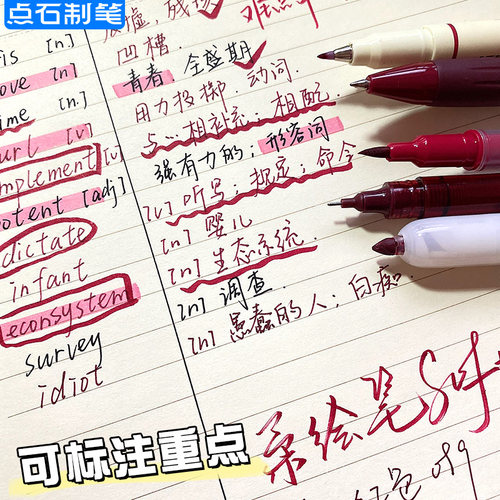 点石制笔
is [n]
ove [n]
ime [n]
url [v]
mplement [v]
otent [adj]
dictate
infant
econsystem
survey
idiot
废墟，残
凹槽.
青春 全盛期
用力投掷. 动词.
与…相补充；相配
强有力的；形容词
[v] 听写；规定；命令
[n] 婴儿
[n] 生态系统.
[n] 调查.
[n] 愚蠢的人；白痴.
可标注重点
柔绘笔
红色 019